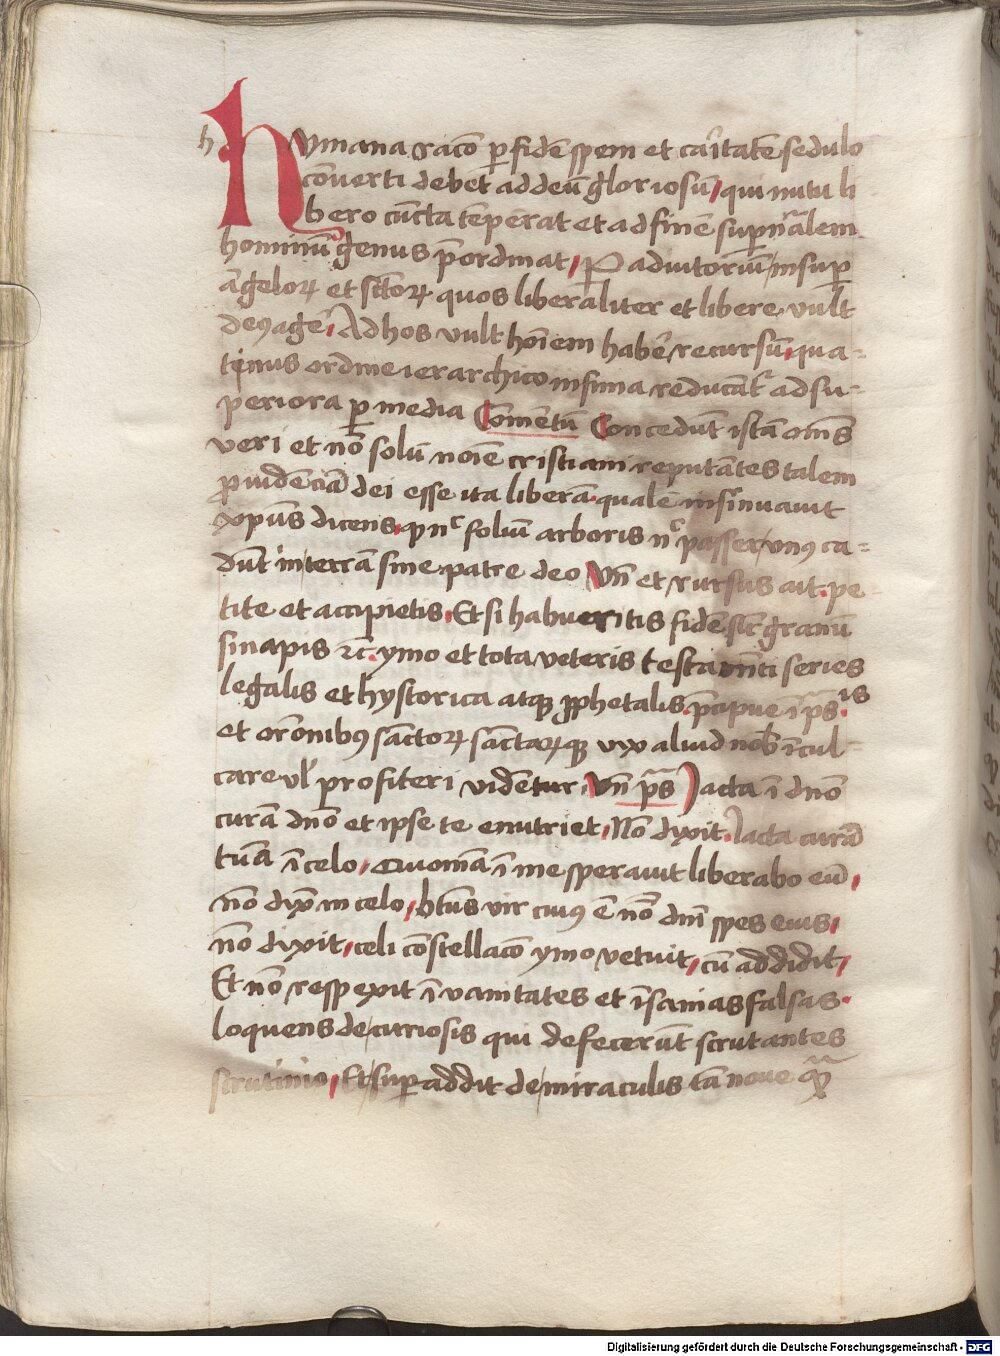 h
Humana racō p̄ fidē spem et caritatē sedulo
cōuerti debet ad deū gloriosū qui nutu li
bero cūcta tēperat et ad finē supnālem
hominū genus p̄ordinat, P adiutoriū insup̄
āgeloꝝ et sctoꝝ quos liberaliter et libere vult
deꝰ agē, Ad hos vult hoīem habē recursū qua-
tinus ordine ierarchico infima reducāt ad su-
periora p̄ media Comētū Concedūt istā om̄s
veri et nō solū noīe cristiani reputātes talem
ꝓuidēciā dei esse ita liberā qualē insinuauit
xp̄us dicens, ꝙ nc̄ foliū arboris nc̄ passer vnꝰ ca-
dūt in terrā sine patre deo Vn̄ et rursus ait pe-
tite et accipietis, Et si habueritis fidē sic̄ granū
sinapis ꝛc̄ ymo et tota veteris testam̄ti series
legalis et hystorica atqꝫ ꝓphetalis p̄cipue ī ps̄is
et orōnibꝰ sanctoꝝ sanctaꝝqꝫ vix aliud nob̄ īcul-
care vl̄ profiteri videntur Vn̄ ps̄ Iacta ī dn̄o
curā dn̄o et ipse te enutriet, Nō dixit Iacta curā
tuā ī celo, Quoniā ī me sperauit liberabo eū,
nō dix̄ in celo, btūs vir cuiꝰ ē nō dn̄i spes eius,
nō dixit, celi cōstellacō ymo vetuit, cū addidit,
Et nō respexit ī vanitates et īsanias falsas
loquens de curiosis qui defecerūt scrutantes
scrutinio, Et sup̄addit de miraculis tā noue ꝙ
Digitalisierung gefördert durch die Deutsche Forschungsgemeinschaft - DFG